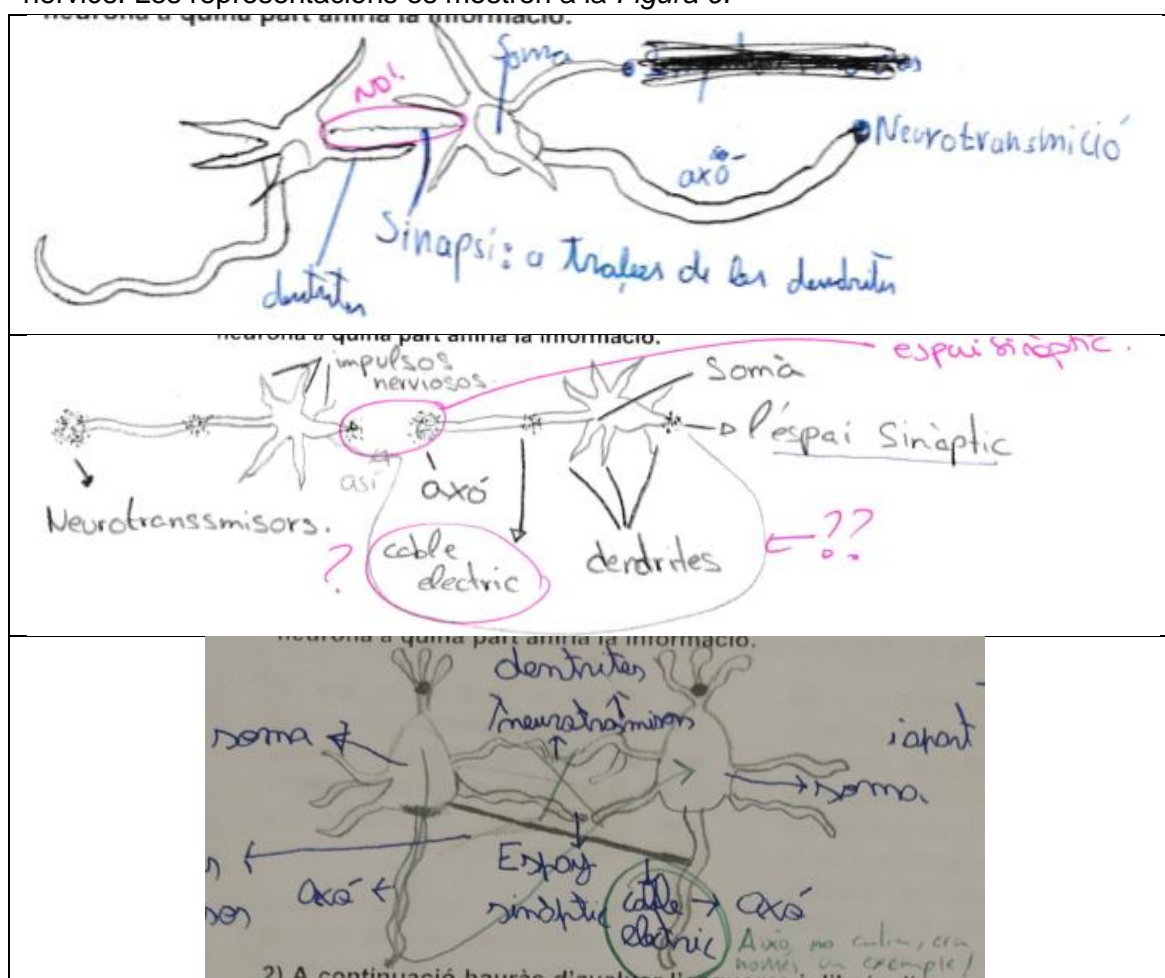 nerviós. Les representacions es mostren a la Figura 6.
neurona a quina part aniria la informació.
soma
NO!
Neurotransmició
axó
Sinapsi: a traves de las dendrites
dentrites
neurona a quina part aniria la informació.
espai sinàptic.
impulsos
nerviosos.
Somà
l'éspai Sinàptic
así
axó
Neurotranssmisors.
cable
electric
dendrites
?
??
neurona a quina part aniria la informació.
dentrites
neurotrasmisors
soma
iapart
soma
Espay
sinàptic
axó
cable
electric
axó
sors
Això no calia, era
només un exemple!
2) A continuació hauràs d'avaluar